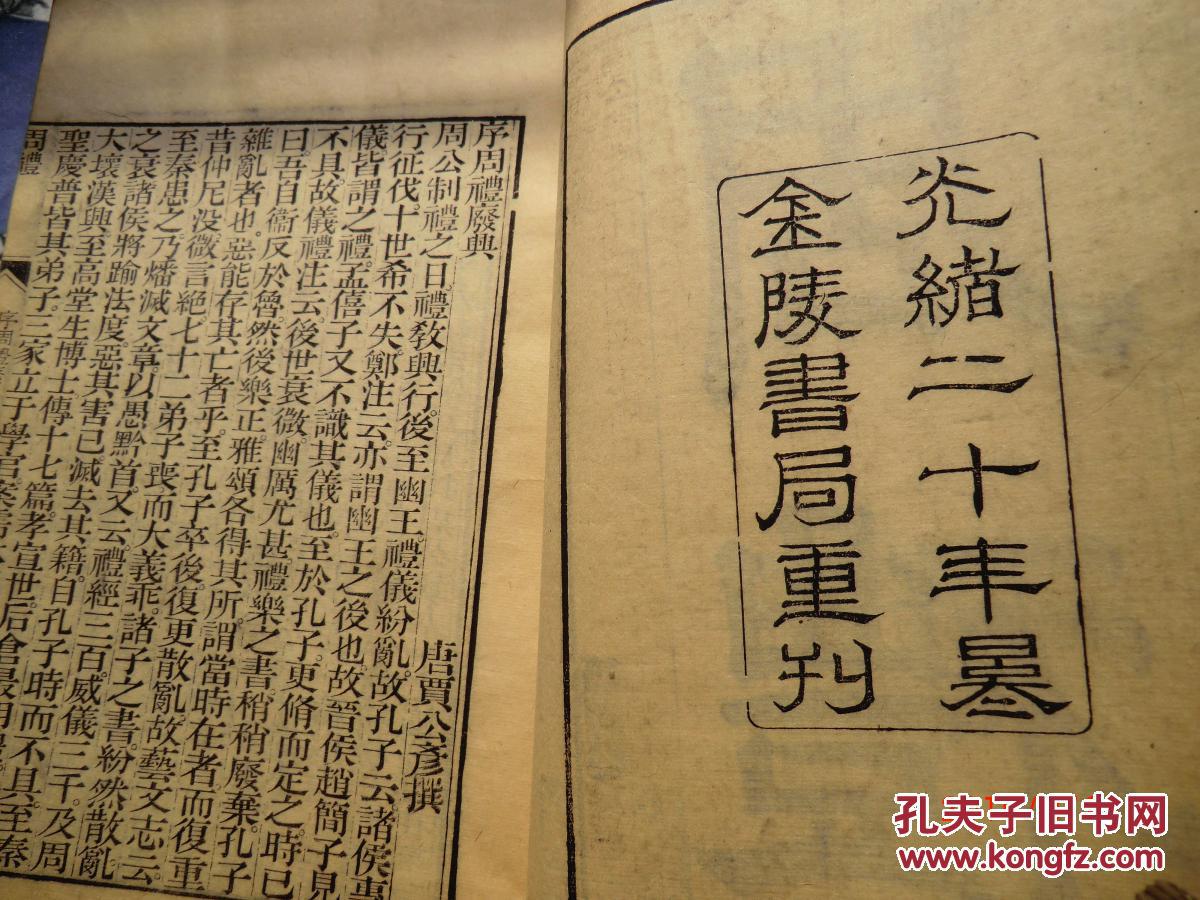 光緒二十年㬪
金陵書局重刊
序周禮廢興
唐賈公彥撰
周公制禮之日。禮敎興行。後至幽王。禮儀紛亂。故孔子云諸侯專
行征伐。十世希不失。鄭注云。亦謂幽王之後也。故晉侯趙簡子見
儀。皆謂之禮。孟僖子又不識其儀也。至於孔子。更脩而定之。時已
不具。故儀禮注云。後世衰微。幽厲尤甚。禮樂之書。稍稍廢棄。孔子
曰。吾自衞反於魯。然後樂正。雅頌各得其所。謂當時在者。而復重
雜亂者也。惡能存其亡者乎。至孔子卒後。復更散亂。故藝文志云
昔仲尼没。微言絕。七十二弟子喪而大義乖。諸子之書。紛然散亂
至秦患之。乃燔滅文章。以愚黔首。又云。禮經三百。威儀三千。及周
之衰。諸侯將踰法度。惡其害己。滅去其籍。自孔子時而不具。至秦
大壞。漢興。至高堂生博士傳十七篇。孝宣世。后倉最明禮。
聖慶普皆其弟子。三家立于學官。案儒
周禮
序周禮
孔夫子旧书网
www.kongfz.com